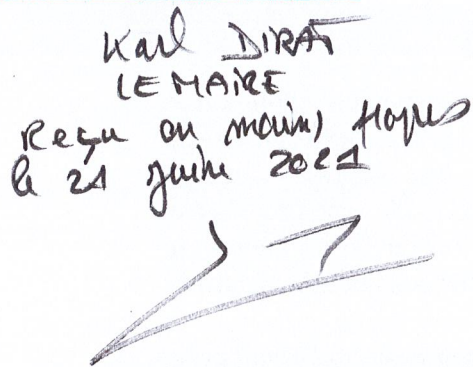 Karl DIRAT
LE MAIRE
Reçu en mains propres
le 21 juin 2021